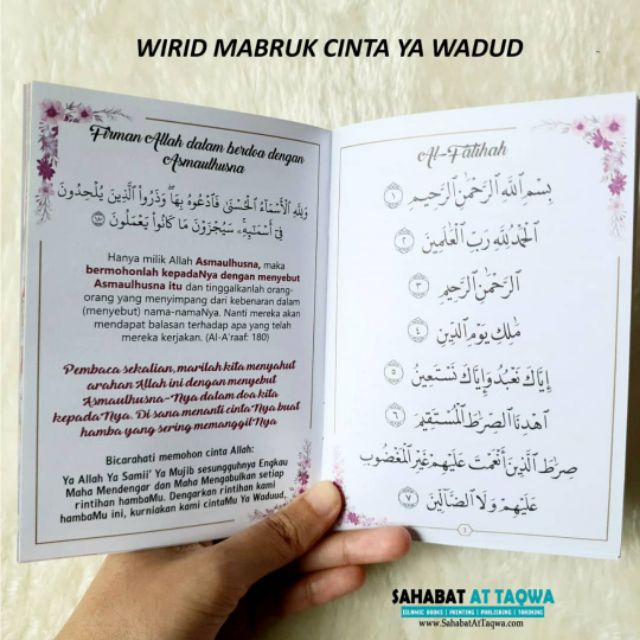 WIRID MABRUK CINTA YA WADUD
Firman Allah dalam berdoa dengan
Asmaulhusna
وَلِلَّهِ ٱلْأَسْمَآءُ ٱلْحُسْنَىٰ فَٱدْعُوهُ بِهَا ۖ وَذَرُوا۟ ٱلَّذِينَ يُلْحِدُونَ
فِىٓ أَسْمَـٰٓئِهِۦ ۚ سَيُجْزَوْنَ مَا كَانُوا۟ يَعْمَلُونَ ١٨٠
Hanya milik Allah Asmaulhusna, maka
bermohonlah kepadaNya dengan menyebut
Asmaulhusna itu dan tinggalkanlah orang-
orang yang menyimpang dari kebenaran dalam
(menyebut) nama-namaNya. Nanti mereka akan
mendapat balasan terhadap apa yang telah
mereka kerjakan. (Al-A'raaf: 180)
Pembaca sekalian, marilah kita menyahut
arahan Allah ini dengan menyebut
Asmaulhusna-Nya dalam doa kita
kepadaNya. Di sana menanti cinta Nya buat
hamba yang sering memanggil Nya
Bicarahati memohon cinta Allah:
Ya Allah Ya Samii' Ya Mujib sesungguhnya Engkau
Maha Mendengar dan Maha Mengabulkan setiap
rintihan hambaMu. Dengarkan rintihan kami
hambaMu ini, kurniakan kami cintaMu Ya Waduud,
Al-Fatihah
بِسْمِ ٱللَّهِ ٱلرَّحْمَـٰنِ ٱلرَّحِيمِ ١
ٱلْحَمْدُ لِلَّهِ رَبِّ ٱلْعَـٰلَمِينَ ٢
ٱلرَّحْمَـٰنِ ٱلرَّحِيمِ ٣
مَـٰلِكِ يَوْمِ ٱلدِّينِ ٤
إِيَّاكَ نَعْبُدُ وَإِيَّاكَ نَسْتَعِينُ ٥
ٱهْدِنَا ٱلصِّرَٰطَ ٱلْمُسْتَقِيمَ ٦
صِرَٰطَ ٱلَّذِينَ أَنْعَمْتَ عَلَيْهِمْ غَيْرِ ٱلْمَغْضُوبِ
عَلَيْهِمْ وَلَا ٱلضَّآلِّينَ ٧
1
SAHABAT AT TAQWA
ISLAMIC BOOKS | PRINTING | PUBLISHING | TRAINING
www.SahabatAtTaqwa.com